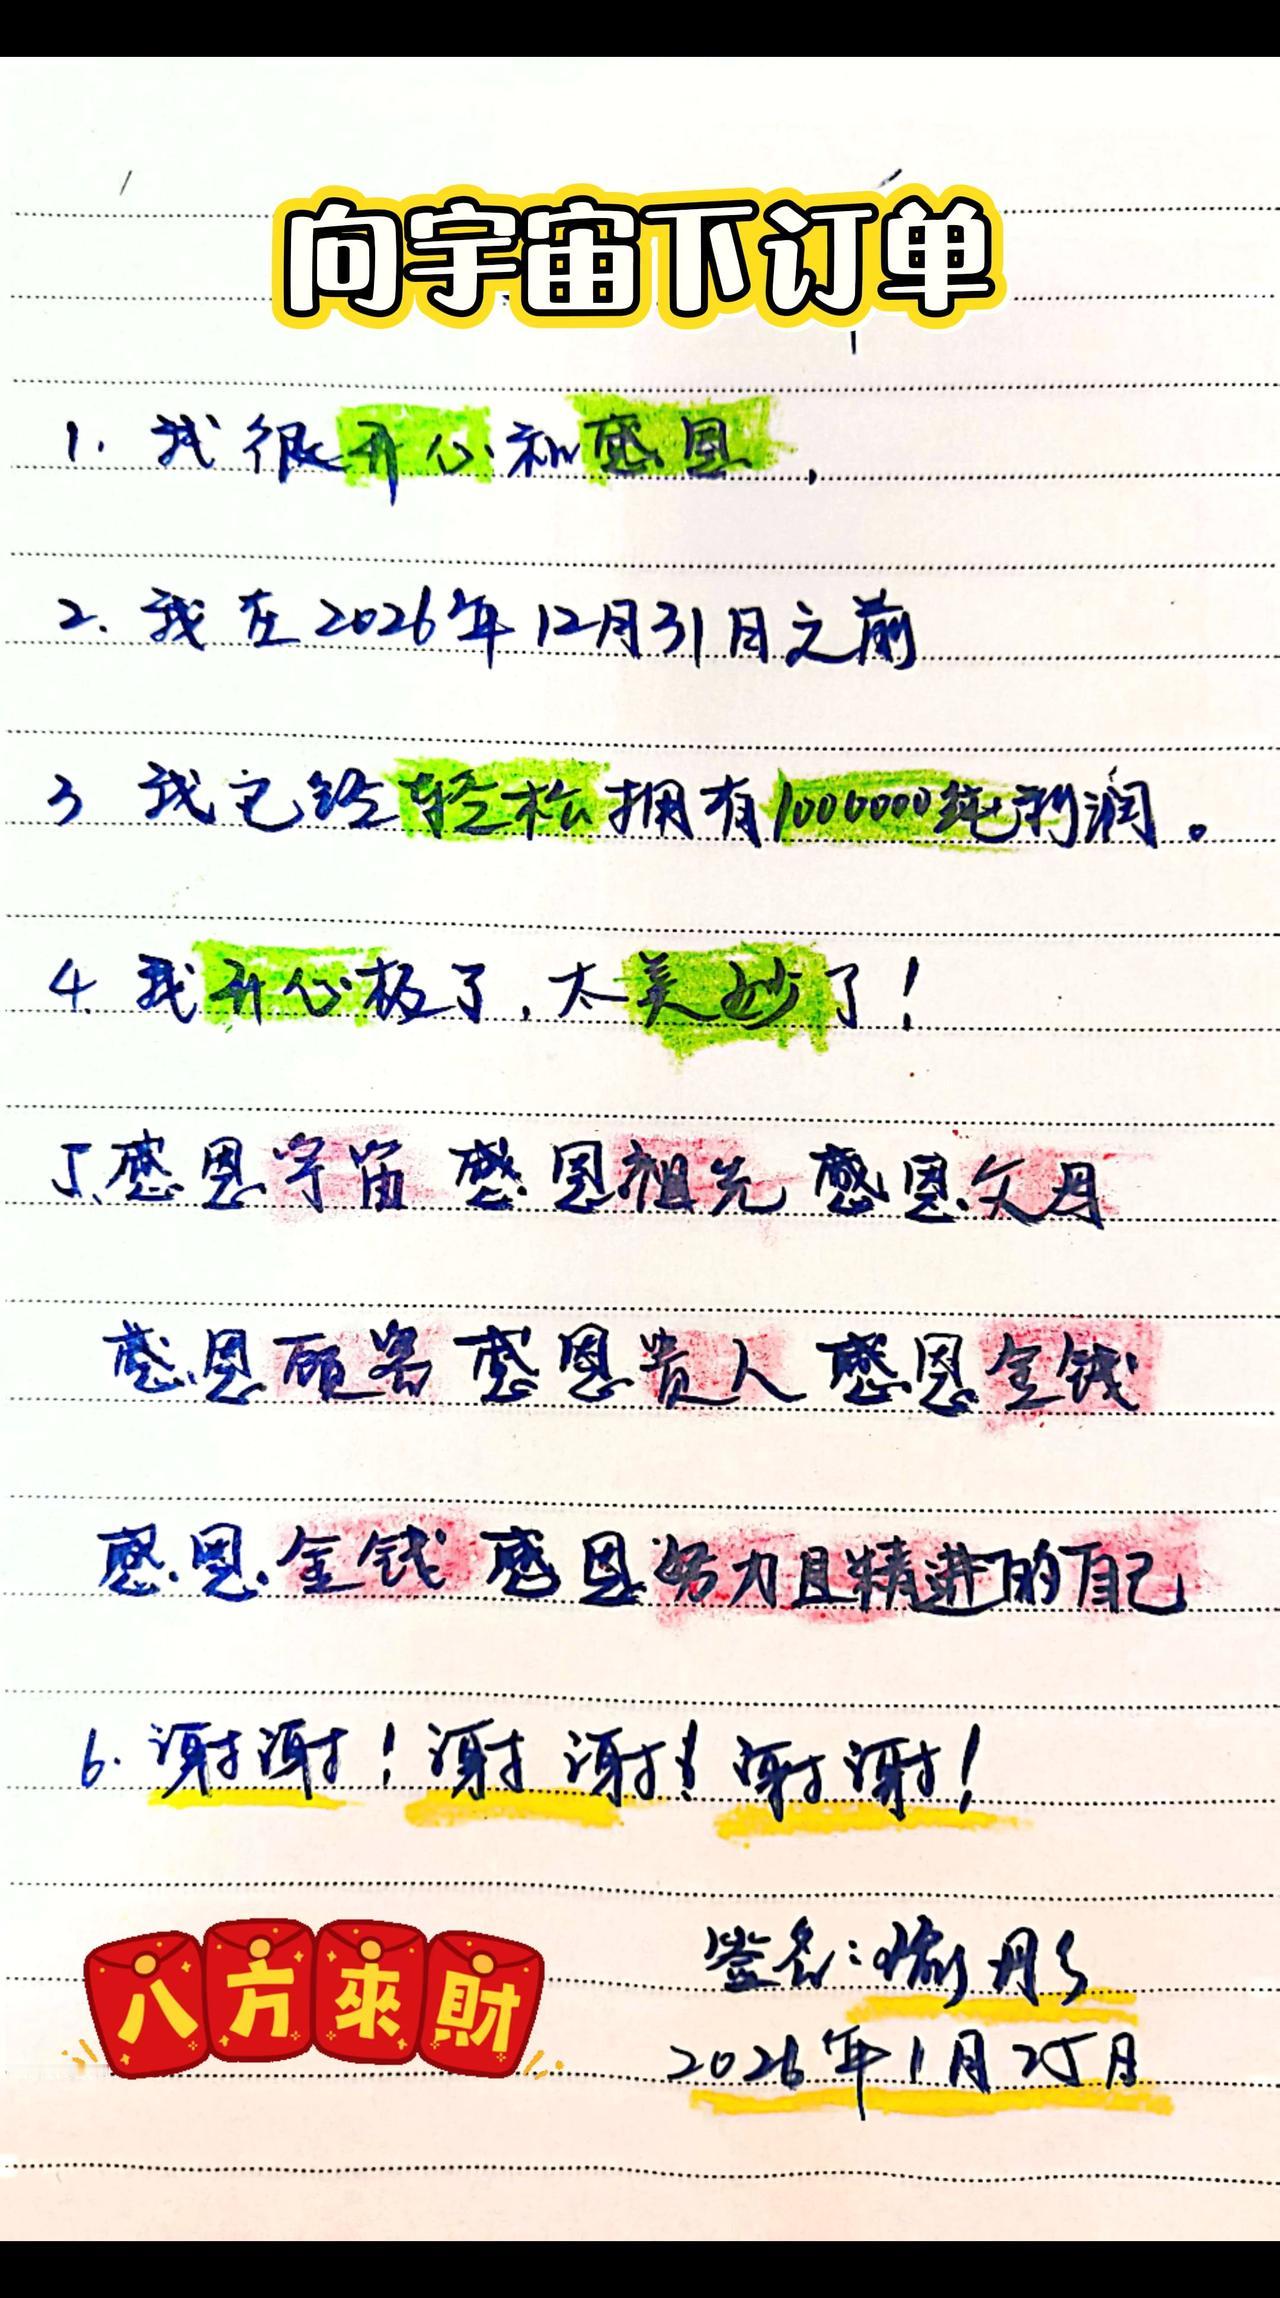 向宇宙下订单
1. 我很开心和感恩,
2. 我在2026年12月31日之前
3 我已经轻松拥有1000000纯利润。
4. 我开心极了,太美妙了!
5.感恩宇宙 感恩祖先 感恩父母
感恩顾客 感恩贵人 感恩金钱
感恩金钱 感恩努力且精进的自己
6. 谢谢!谢谢!谢谢!
签名:
2026年1月25日
八方來財